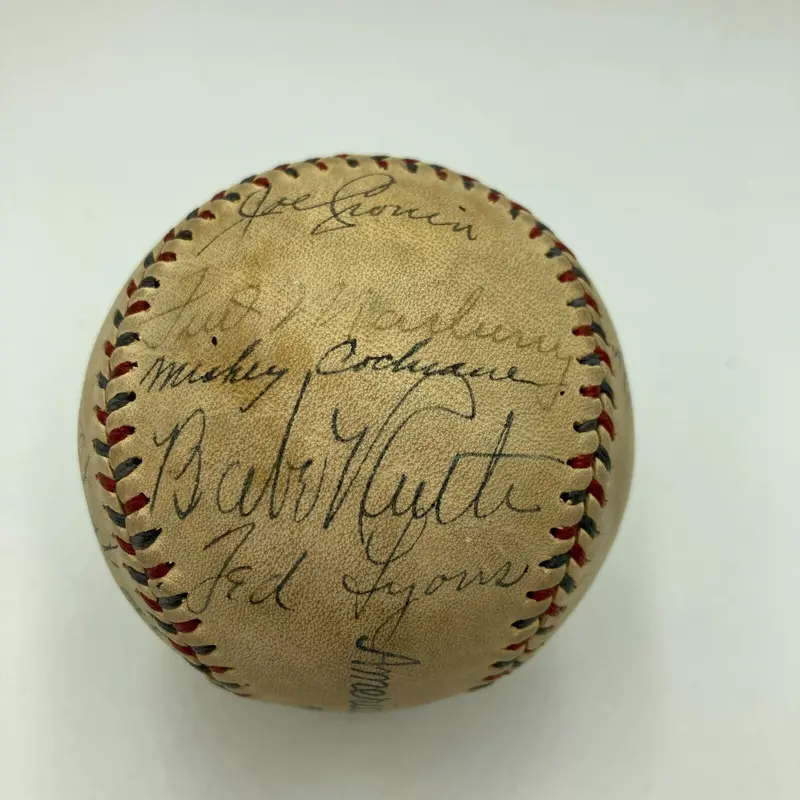 Joe Cronin
Fred Marberry
Mickey Cochrane
Babe Ruth
Ted Lyons
Ameri